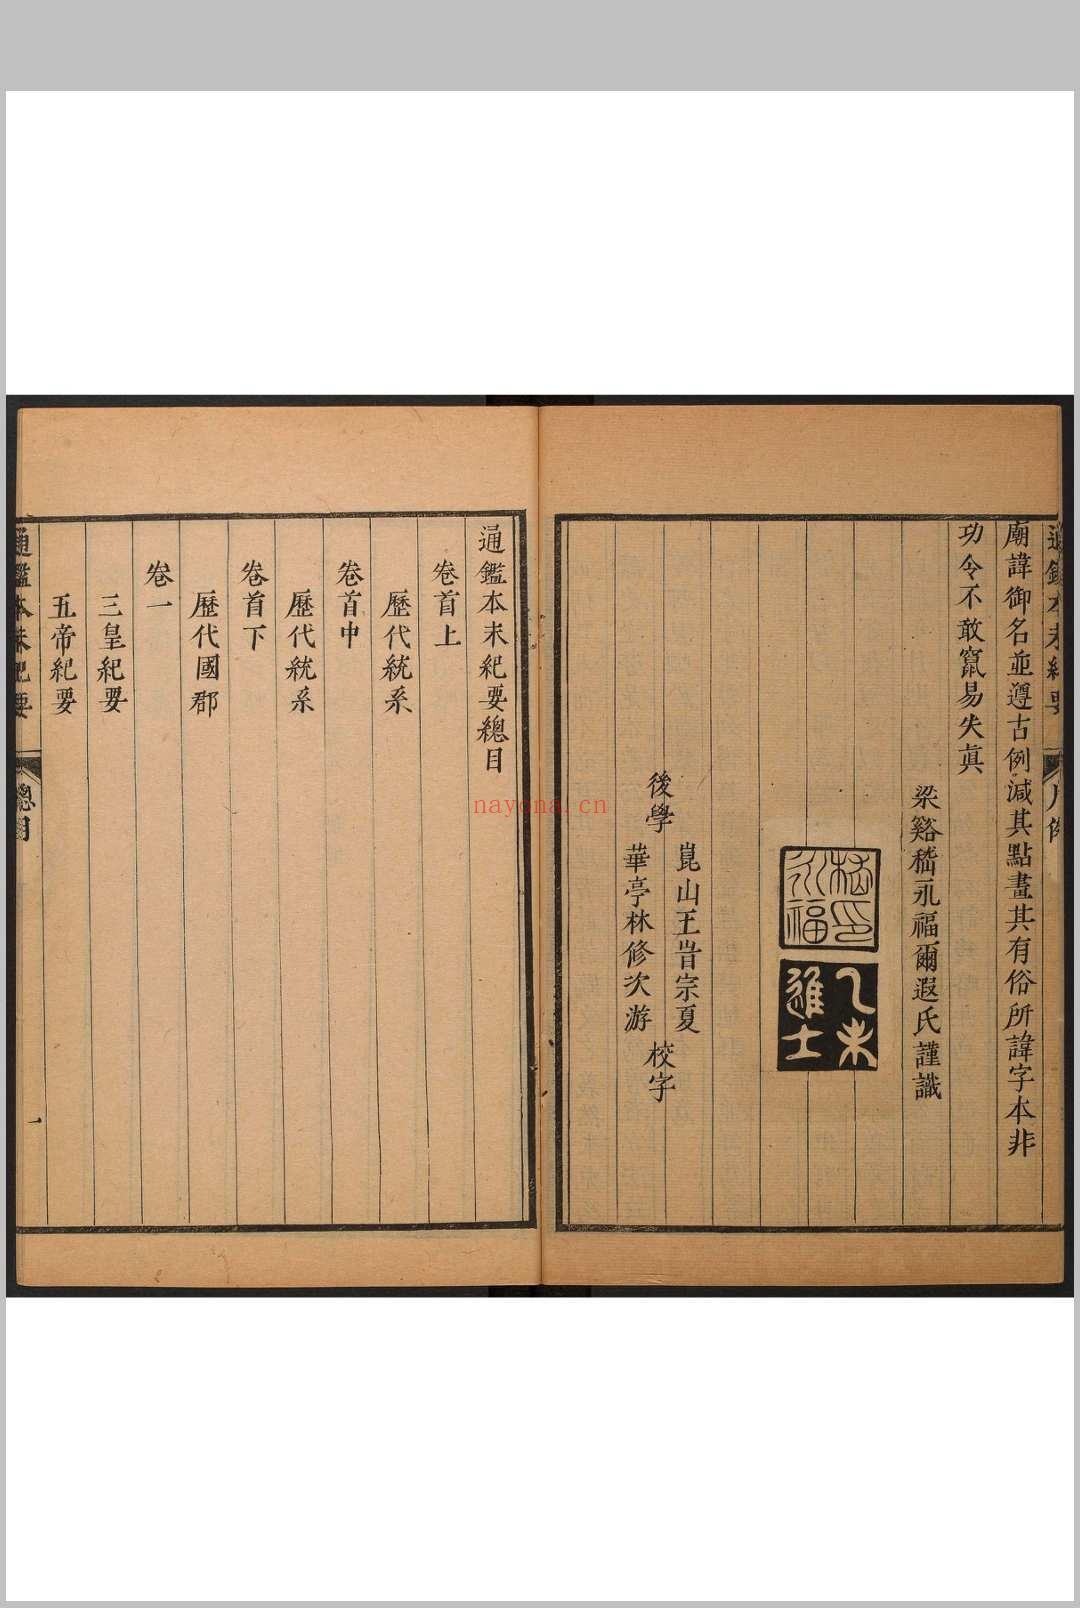 廟諱御名並遵古例減其點畫其有俗所諱字本非
功令不敢竄易失真
梁谿嵇永福爾遐氏謹識
嵇永福印
乙未進士
後學
崑山王旹宗夏
華亭林修次游
校字
通鑑本末紀要總目
卷首上
歷代統系
卷首中
歷代統系
卷首下
歷代國郡
卷一
三皇紀要
五帝紀要
通鑑本末紀要
總目
一
nayona.cn